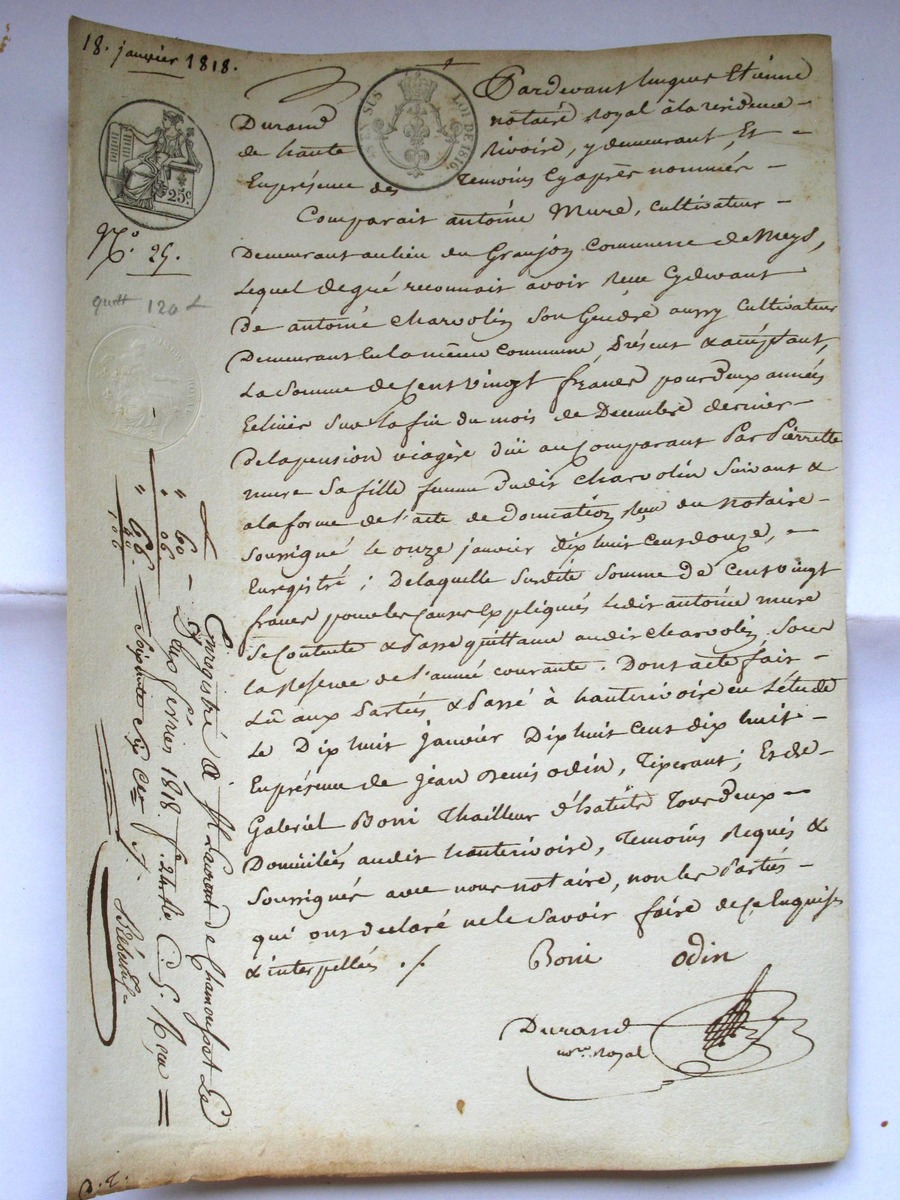 18. janvier 1818.
Pardevant hugues Etienne
Durand notaire Royal à la residence
de haute Rivoire, y demeurant, Et
En présence des temoins Cy après nommés
EN SUS LOI DE 1816.
25c.
Comparait antoine Mure, cultivateur
Demeurant au lieu du Granjon Commune de Meys,
Lequel de gré reconnait avoir Recu Cydevant
De antoine Charvolin son Gendre aussy Cultivateur
Demeurant En la même Commune, Présent & acceptant,
La Somme de Cent vingt francs pour deux années
Echues Sur la fin du mois de Decembre dernier
De la pension viagère düe au Comparant Par Pierrette
mure sa fille femme dudit Charvolin Suivant &
a la forme de l'acte de Donnation Recu du notaire
Soussigné le onze janvier dix huit Cent douze,
Enregistré ; De laquelle Susdite Somme de Cent vingt
francs pour les Causes Expliqués Ledit antoine mure
Se Contente & Passe quittance audit Charvolin, Sous
la Reserve de l'année courante. Dont acte fait
Lû aux Parties & Passé à hauterivoire en L'étude
Le Dix huit Janvier Dix huit Cent dix huit
En présence de Jean Denis Odin, Tixerant ; Et de
Gabriel Boni Thailleur d'habits Tous deux
Domiciliés audit hauterivoire, Temoins Requis &
Soussignés avec nous notaire, non les Parties
qui ont declaré ne le Savoir faire de ce Enquises
& interpellées ./.
Boni Odin
Durand
nore. Royal
No. 25.
quitt 120 L
Enregistré à St Laurent de Chamousset Le
Deux fevrier 1818. f. 24 C. 5. Recu
" 60
" 06
" 66.
Soixante Six Ces
D. E.